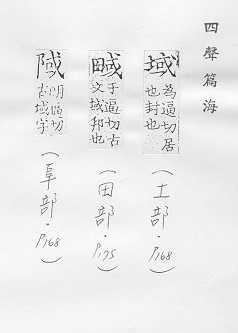 四聲篇海
域 為逼切居
也封也
(土部·P.168)
𤱿 于逼切古
文域邦也
(田部·P.175)
䧕 明逼切
古域字
(阜部·P.168)